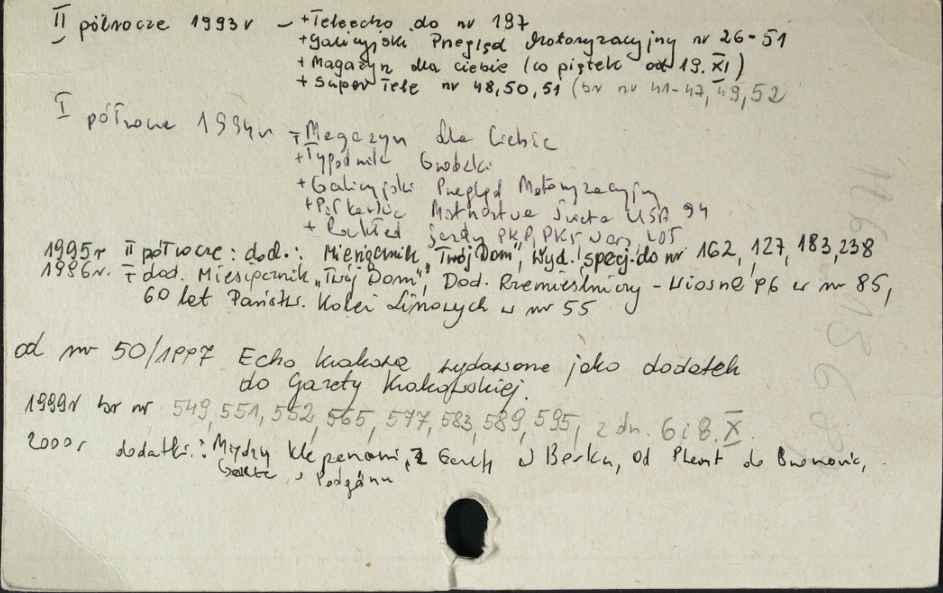 II półrocze 1993r – + Teleecho do nr 197
+ Galicyjski Przegląd Motoryzacyjny nr 26-51
+ Magazyn dla ciebie (co piątek od 19.XI)
+ Super Tele nr 48,50,51 (br nr 41-47,49,52
I półrocze 1994r + Magazyn dla Ciebie
+ Tygodnik Grobelki
+ Galicyjski Przegląd Motoryzacyjny
+ Piłkarskie Mistrzostwa Świata USA 94
+ Rozkład Jazdy PKP, PKS oraz LOT
1995r II półrocze: dod.: Miesięcznik "Twój Dom", Wyd. specj. do nr 162, 127, 183, 238
1996r. I dod. Miesięcznik "Twój Dom", Dod. Rzemieślniczy – Wiosna 96 w nr 85,
60 let Państw. Kolei Linowych w nr 55
od nr 50/1997 Echo Krakowa wydawane jako dodatek
do Gazety Krakowskiej.
1999r br nr 549, 551, 552, 565, 577, 583, 589, 595, z dn. 6 i 8.X.
2000r dodatki: Między Kleparzem, z Gazetą w Beskid, od Plant do Bronowic,
Podgórzu